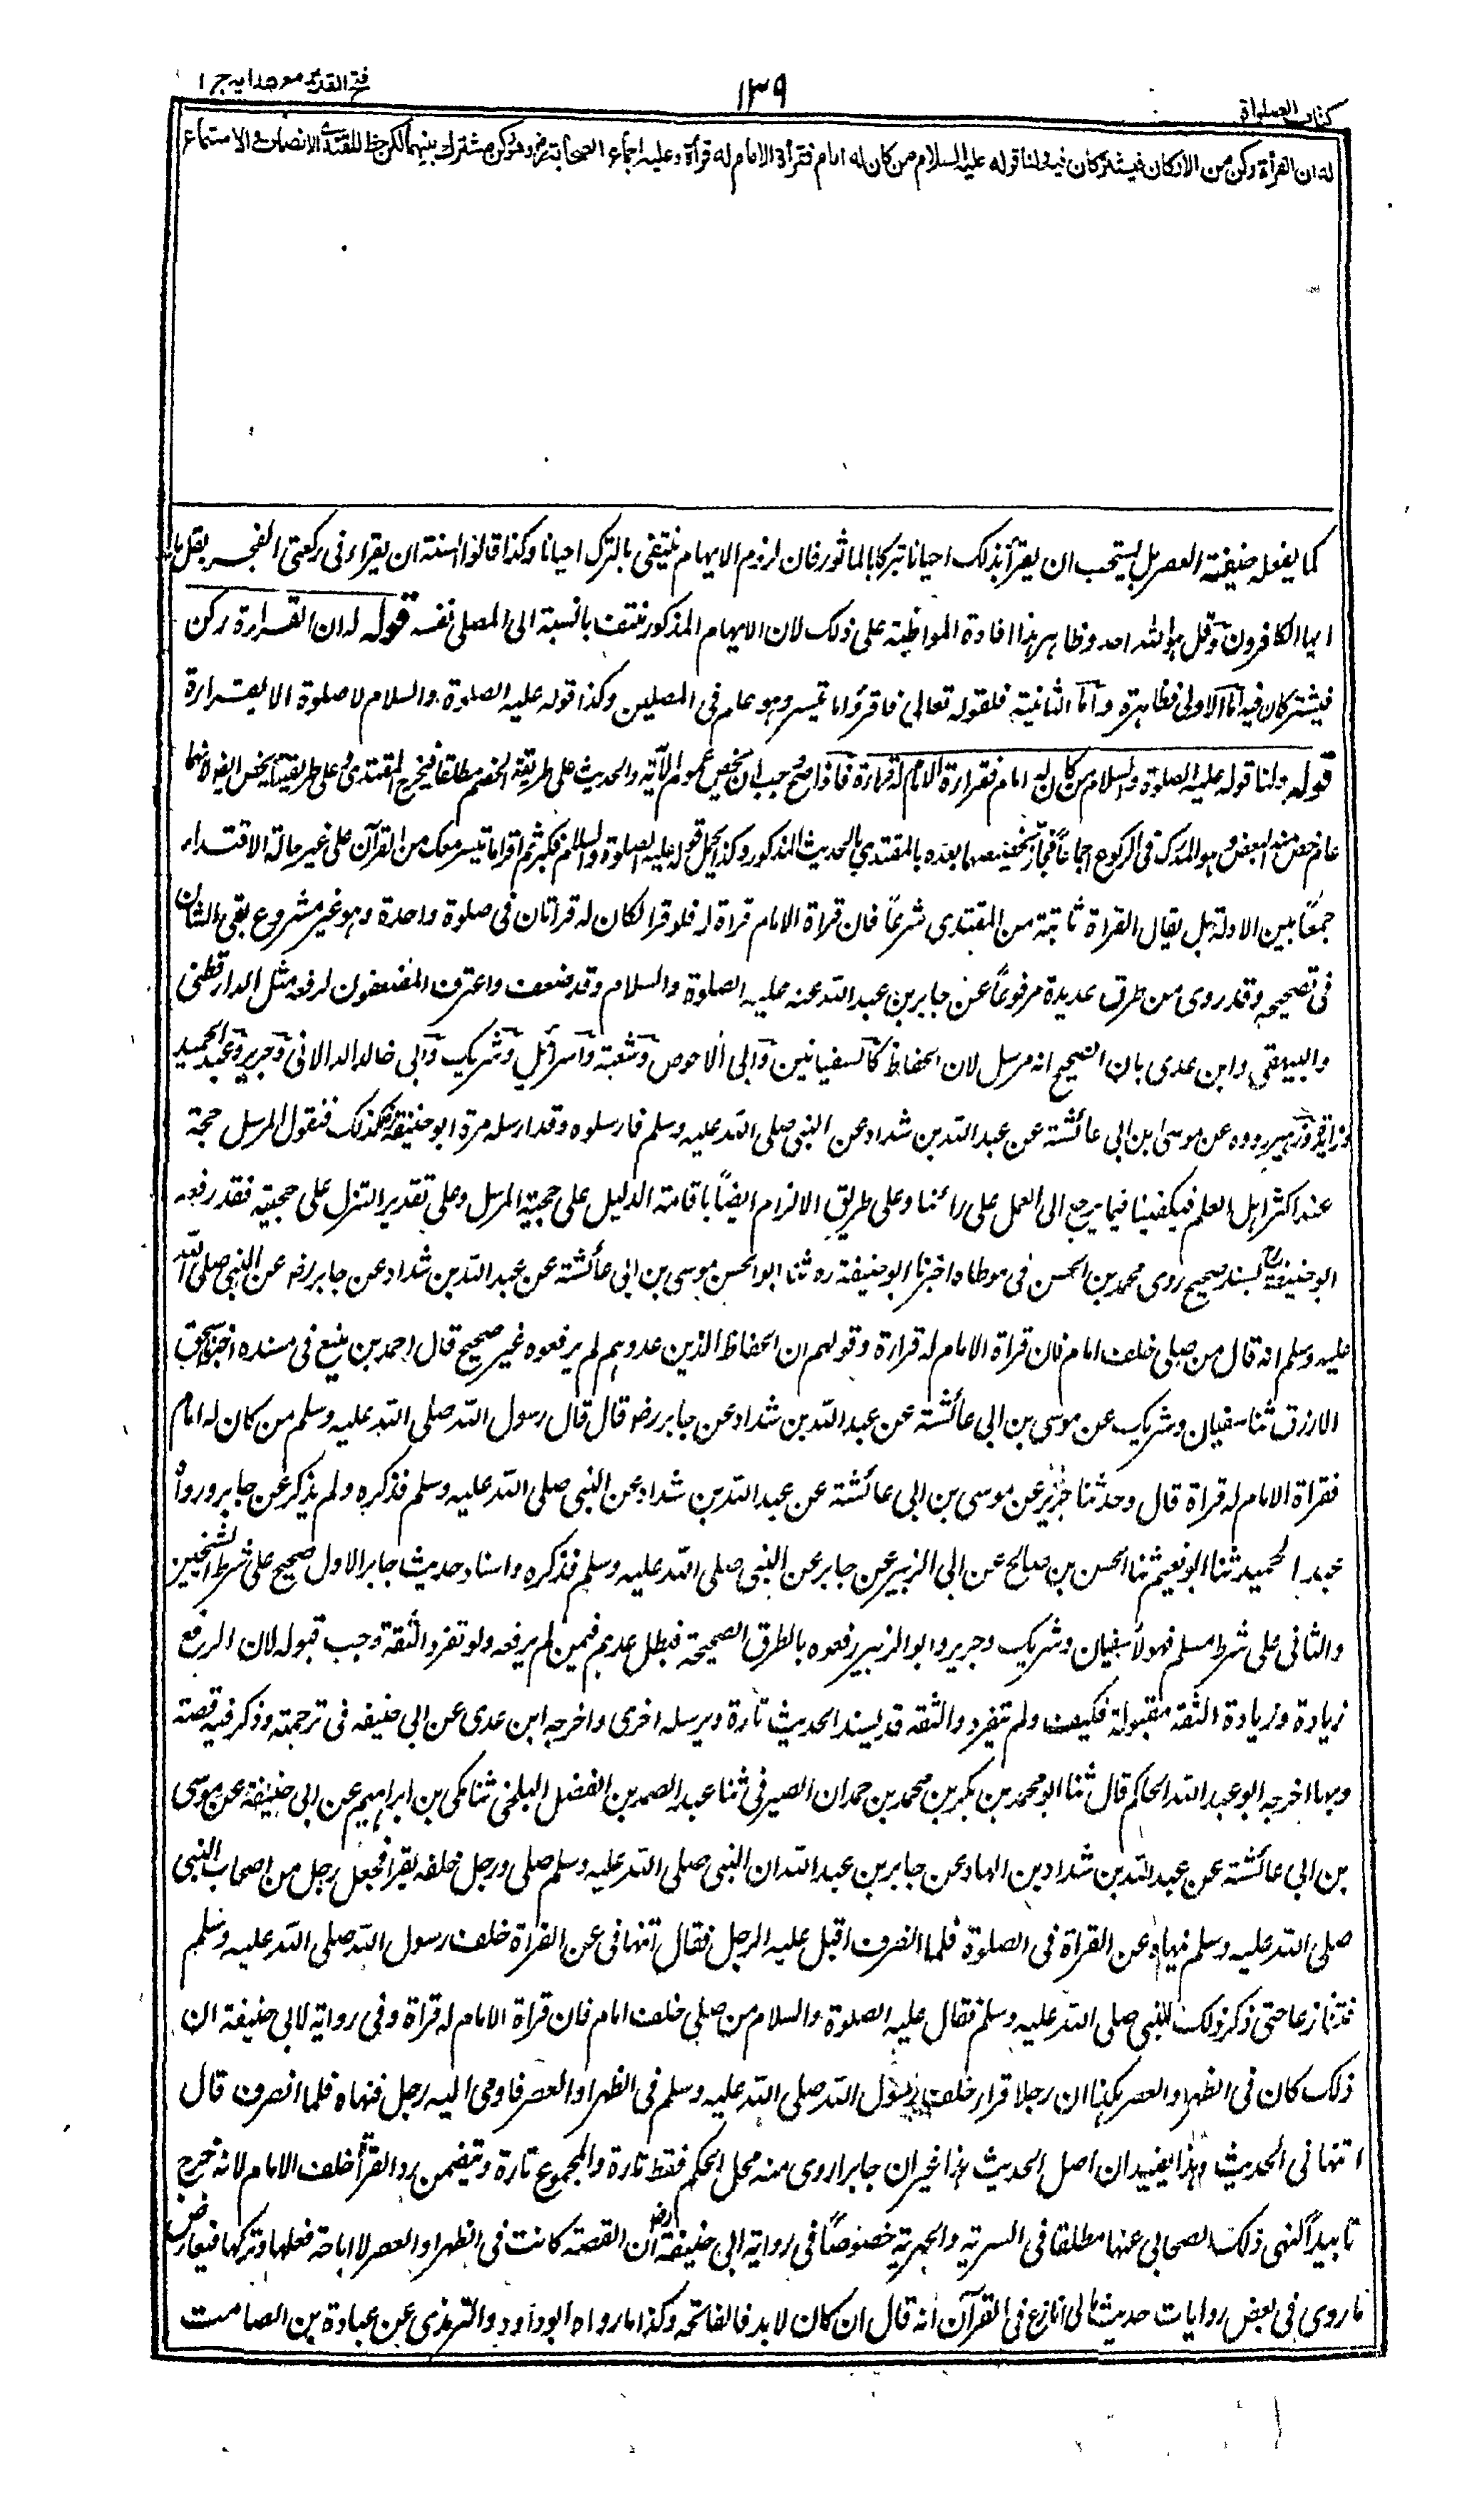 كتاب الصلوات
١٣٩
فتح القدير مع هدايه ج ١
له ان القرأة ركن من الاركان فيشتركان فيه ولنا قوله عليه السلام من كان له امام فقرأة الامام له قرأة وعليه اجماع الصحابة رض وهو ركن مشترك بينهما لكن حظ المقتدى الانصات والاستماع
كما يفعله حنفية العصر بل يستحب ان يقرأ بذلك احيانا تبركا بالماثور فان لزوم الايهام ينتفى بالترك احيانا وكذا قالوا السنة ان يقرأ فى ركعتى الفجر بقل يا
ايها الكافرون وقل هو الله احد وظاهر هذا افادة المواظبة على ذلك لان الايهام المذكور منتف بالنسبة الى المصلى نفسه قوله له ان القراءة ركن
فيشتركان فيه اما الاولى فظاهرة واما الثانية فلقوله تعالى فاقرؤا ما تيسر وهو عام فى المصلين وكذا قوله عليه الصلوة والسلام لا صلوة الا بقراءة
قوله ولنا قوله عليه الصلوة والسلام من كان له امام فقراءة الامام له قراءة فاذا صح وجب ان يخص عموم الآية والحديث على طريقة الخصم مطلقا فيخرج المقتدى وعلى طريقتنا يخص ايضا لانهما
عام خص منه البعض وهو المدرك فى الركوع اجماعاً فجاز تخصيصهما بعده بالمقتدي بالحديث المذكور وكذا يحمل قوله عليه الصلوة والسلام فكبر ثم اقرا ما تيسر معك من القرآن على غير حالة الاقتداء
جمعاً بين الادلة بل يقال القراة ثابتة من المقتدي شرعاً فان قراة الامام قراة له فلو قرا لكان له قراتان فى صلوة واحدة وهو غير مشروع بقى الشان
فى تصحيحه وقد روى من طرق عديدة مرفوعاً عن جابر بن عبد الله عنه عليه الصلوة والسلام وقد ضعف واعترف المضعفون لرفعه مثل الدارقطنى
والبيهقى وابن عدى بان الصحيح انه مرسل لان الحفاظ كالسفيانين وابى الاحوص وشعبة واسرائيل وشريك وابى خالد الدالانى وجرير وعبد الحميد
وزايدة وزهير رووه عن موسى ابن ابى عائشة عن عبد الله بن شداد عن النبى صلى الله عليه وسلم فارسلوه وقد ارسله مرة ابو حنيفة رض كذلك فنقول المرسل حجة
عند اكثر اهل العلم فيكفينا فيما يرجع الى العمل على رائنا وعلى طريق الالزام ايضاً باقامة الدليل على حجية المرسل وعلى تقدير التنزل على حجيته فقد رفعه
ابو حنيفة رح بسند صحيح روى محمد بن الحسن فى موطاه اخبرنا ابو حنيفة ره ثنا ابو الحسن موسى بن ابى عائشة عن عبد الله بن شداد عن جابر رضه عن النبى صلى الله
عليه وسلم انه قال من صلى خلف امام فان قراة الامام له قراءة وقولهم ان الحفاظ الذين عدوهم لم يرفعوه غير صحيح قال احمد بن منيع فى مسنده اخبرنا اسحق
الازرق ثنا سفيان وشريك عن موسى بن ابى عائشة عن عبد الله بن شداد عن جابر رضه قال قال رسول الله صلى الله عليه وسلم من كان له امام
فقراة الامام له قراة قال وحدثنا جرير عن موسى بن ابى عائشة عن عبد الله بن شداد عن النبى صلى الله عليه وسلم فذكره ولم يذكر عن جابر ورواه
عبد الحميد ثنا ابو نعيم ثنا الحسن بن صالح عن ابى الزبير عن جابر عن النبى صلى الله عليه وسلم فذكره واسناد حديث جابر الاول صحيح على شرط الشيخين
والثانى على شرط مسلم فهولاء سفيان وشريك وجرير وابو الزبير رفعوه بالطرق الصحيحة فبطل عدهم فيمن لم يرفعه ولو تفرد الثقة وجب قبوله لان الرفع
زيادة وزيادة الثقة مقبولة فكيف ولم يتفرد والثقة قد يسند الحديث تارة ويرسله اخرى واخرجه ابن عدى عن ابى حنيفه فى ترجمته وذكر فيه قصة
وبها اخرجه ابو عبد الله الحاكم قال ثنا ابو محمد بن بكر بن محمد بن حمدان الصيرفى ثنا عبد الصمد بن الفضل البلخى ثنا مكى بن ابراهيم عن ابى حنيفة عن موسى
بن ابى عائشة عن عبد الله بن شداد بن الهاد عن جابر بن عبد الله ان النبى صلى الله عليه وسلم صلى ورجل خلفه يقرا فجعل رجل من اصحاب النبى
صلى الله عليه وسلم نهياه عن القراة فى الصلوة فلما انصرف اقبل عليه الرجل فقال اتنهانى عن القراة خلف رسول الله صلى الله عليه وسلم
فتنازعا حتى ذكر ذلك للنبى صلى الله عليه وسلم فقال عليه الصلوة والسلام من صلى خلف امام فان قراة الامام له قراة وفى رواية لابى حنيفة ان
ذلك كان فى الظهر والعصر هكذا ان رجلا قراء خلف رسول الله صلى الله عليه وسلم فى الظهر او العصر فاومى اليه رجل فنهاه فلما انصرف قال
اتنهانى الحديث وهذا يفيد ان اصل الحديث هذا غير ان جابرا روى منه محل الحكم فقط تارة والمجموع تارة ويتضمن رد القرأة خلف الامام لانه خرج
تاييداً لنهى ذلك الصحابى عنها مطلقا فى السرية والجهرية خصوصاً فى رواية ابى حنيفة رضه ان القصة كانت فى الظهر او العصر لا اباحة فعلها وتركها فيعارض
ما روى فى بعض روايات حديث ما لى انازع فى القرآن انه قال ان كان لا بد فالفاتحه وكذا ما رواه ابو داود والترمذى عن عبادة بن الصامت